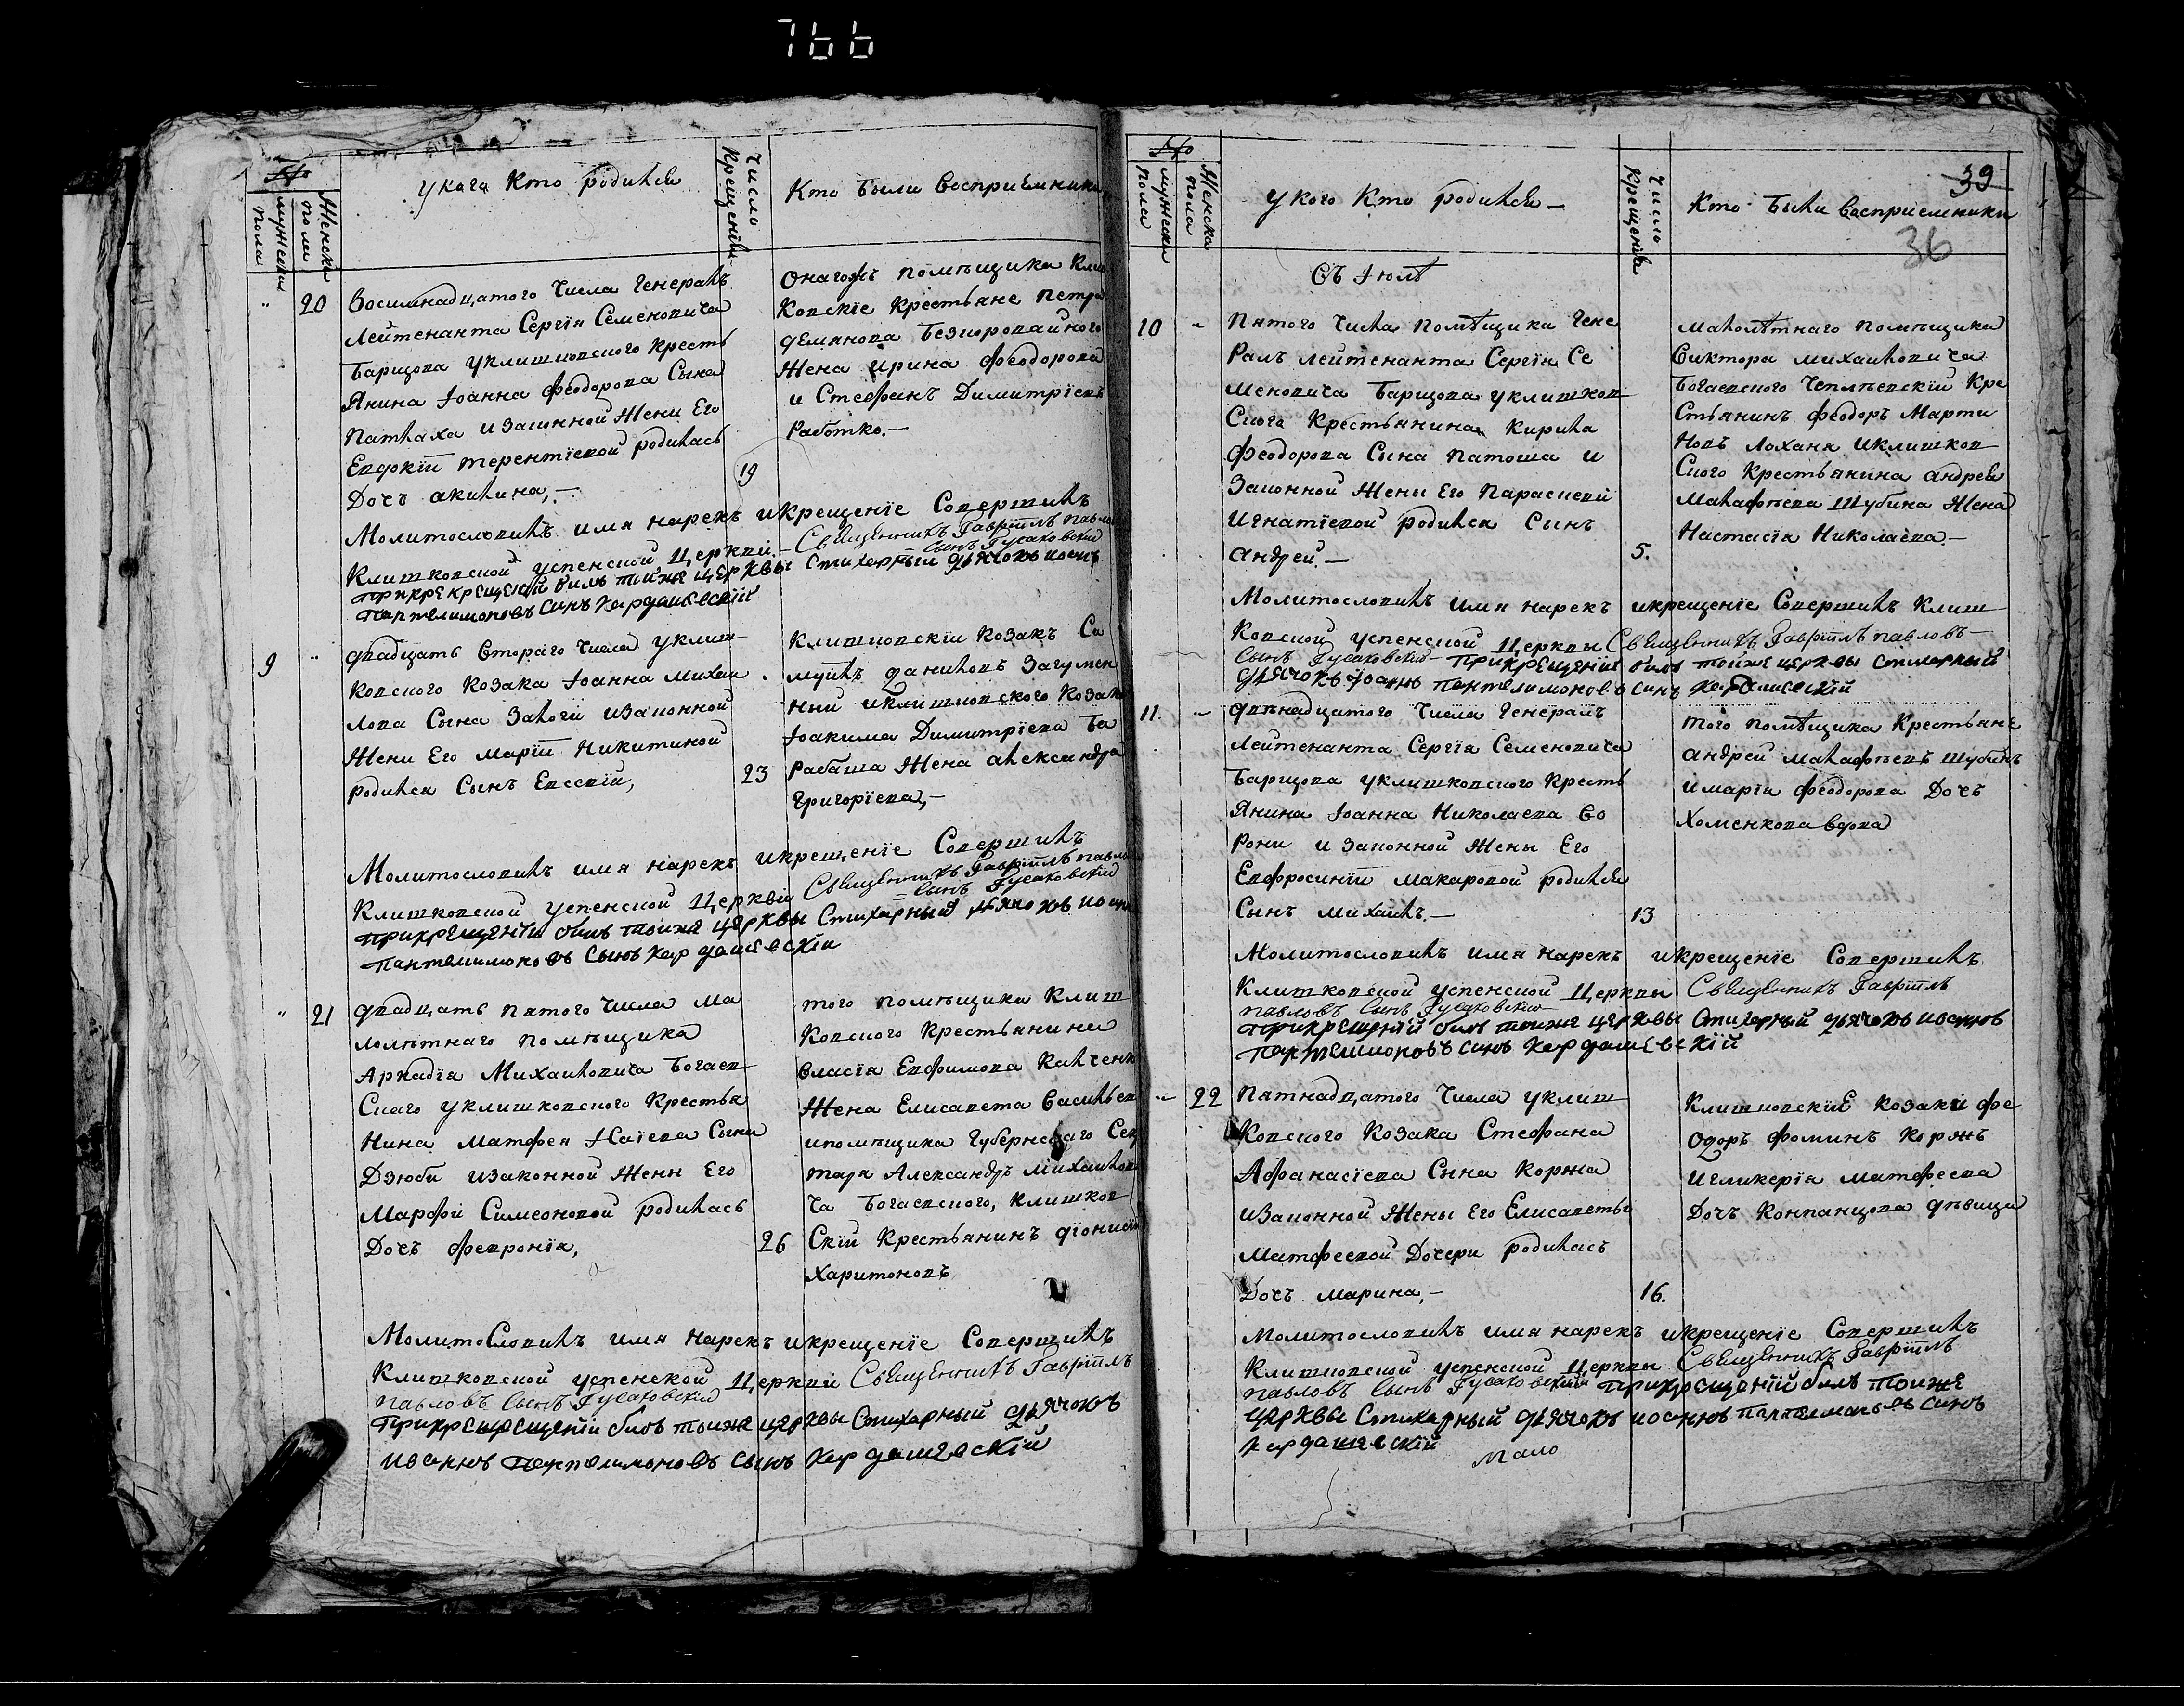 766
№
мужеска пола
Женска пола
У кага Кто родился
Число Крещенія
Кто Были Восприемники
" 20
Восимнадцатого Числа Генералъ
Лейтенанта Сергія Семеновича
Барщова уклишковского Кресть
Янина Іоанна Феодорова Сына
Патлаха изаконной Жены Его
Евдокіи Терентіевой родилась
Дочъ Акилина,—
19
Онагожъ помѣщика Клиш
Ковскіе Крестьяне Петра
Демянова Безпоровайного
Жена Ирина Феодорова
и Стефанъ Димитріевъ
Работко.—
Молитословилъ имя нарекъ икрещеніе Совершилъ
Клишковской успенской Церкви.— Священникъ Гавріилъ павло
сынъ Гусаковский
прикрекрещеній билъ тоиже церквы Стихарный дьячокъ иоанъ
пантелимоновъ синъ Кардашевскій
9 "
Двадцать Втораго Числа уклиш
ковского Козака Іоанна Михаи
лова Сына Заногы изаконной
Жены Его Маріи Никитиной
родился Сынъ Евсевій,
23
Клишковскіи Козакъ Са
муйлъ Даниловъ Загумен
ный иклишковского Козака
Іоакима Димитріева Ба
рабаша Жена Александра
Григоріева,—
Молитословилъ имя нарекъ икрещеніе Совершилъ
Клишковской успенской Церквы Священникъ Гавріилъ павло
— сынъ Гусаковский
прикрещеніи билъ тоиже церквы Стихарный дьячокъ иоанъ
пантелимоновъ сынъ Кардашевскіи
" 21
Двадцать пятого Числа Ма
лолѣтнаго помѣщика
Аркадія Михаиловича Богаев
Скаго уклишковского Крестья
Нина Матфея Ісаіева Сына
Дзюби изаконной Жены Его
Марфы Симеоновой родилась
Дочъ Февронія,
26
того помѣщика Клиш
Ковского Крестьянина
Власія Евфимова Калченк
Жена Елисавета Василье
ипомѣщика Губернскаго Сек
таря Александръ Михаилов
ча Богаевского, Клишков
Скій Крестьянинъ Діонисій
Харитоновъ
МолитоСловилъ имя нарекъ икрещеніе Совершилъ
Клишковской успенской Церквы Священникъ Гавріилъ
павловъ Сынъ Гусаковский
прикресрещеніи билъ тоиже церквы Стихарный дьячокъ
иоаннъ пантелимоновъ сынъ Кардашевскій
39
36
№
мужеска пола
Женска пола
У кого Кто родился —
Число Крещенія
Кто Были Восприемники
Съ Іюля
10 "
Пятого Числа Помѣщика Гене
Ралъ лейтенанта Сергія Се
меновича Барщова уклишков
Скога Крестьянина Кирила
Феодорова Сына Патоша и
Законной Жены Его Параскеви
Игнатіевой родился Сынъ
Андрей.—
5.
Малолѣтнаго помѣщика
Виктора Михаиловича
Богаевского Чеплѣевскій Кре
Стьянинъ Феодоръ Марти
Новъ Лоханя иклишков
Ского Крестьянина Андрея
Малафѣева Шубина Жена
Настасія Николаева.—
Молитословилъ имя нарекъ икрещеніе Совершилъ Клиш
Ковской успенской Церквы Священникъ Гавріилъ павловъ —
сынъ Гусаковский — прикрещеніи билъ тоиже церквы Стихарный
дьячокъ Иоаннъ пантелимоновъ синъ Кардашевскій
11. "
Двѣнадцатого Числа Генералъ
Лейтенанта Сергія Семеновича
Барщова уклишковского Кресть
Янина Іоанна Николаева Во
рони изаконной Жены Его
Евфросиніи Макаровой родился
Сынъ Михаилъ.—
13
того помѣщика Крестьяне
Андрей Малафѣевъ Шубинъ
имаріи Феодорова Дочъ
Хоменкова вдова
Молитословилъ имя нарекъ икрещеніе Совершилъ
Клишковской успенской Церквы Священникъ Гавріилъ
павловъ сынъ Гусаковский
прикрещеніи билъ тоиже церквы Стихарный дьячокъ иоаннъ
пантелимоновъ синъ Кардашевскій
" 22
Пятнадцатого Числа уклиш
Ковского Козака Стефана
Афанасіева Сына Коржа
изаконной Жены Его Елисаветы
Матфеевой Дочери родилась
Дочъ Марина,—
16.
Клишковскіе козаки Фе
одоръ Фоминъ Коржъ
игликерія Матфеева
Дочъ Компанцова дѣвица
Молитословилъ имя нарекъ икрещеніе Совершилъ
Клишковской успенской Церквы Священникъ Гавріилъ
павловъ Сынъ Гусаковский прикрещеніи билъ тоиже
церквы Стихарный дьячокъ иоаннъ пантелимоновъ синъ
кардашевскій
мало